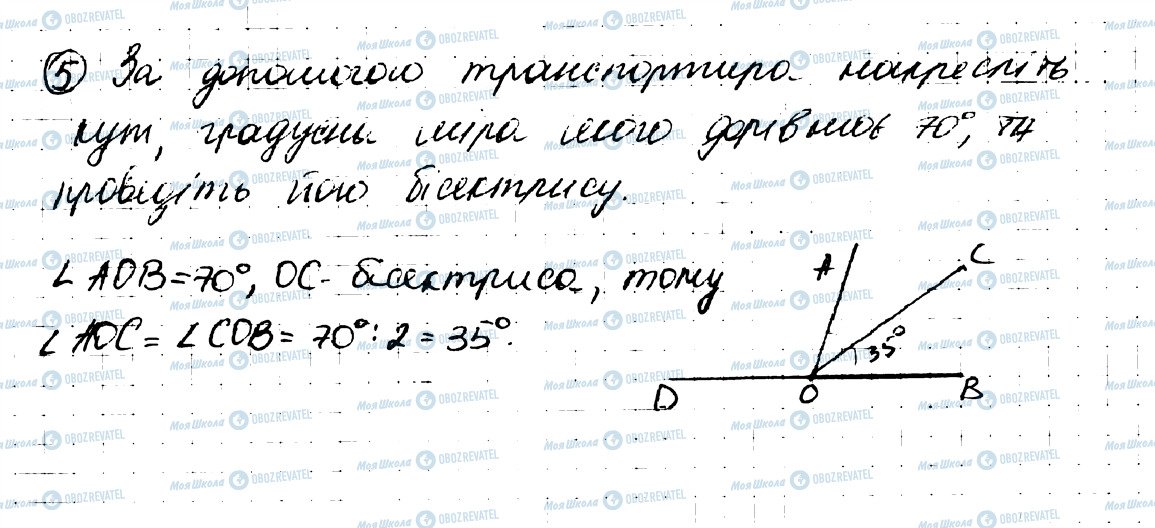 5 За допомогою транспортира накресліть
кут, градусна міра якого дорівнює 70°, та
проведіть його бісектрису.
∠AOB=70°, OC- бісектриса, тому
∠AOC = ∠COB = 70°:2 = 35°.
A
C
35°
D
O
B
Моя Школа OBOZREVATEL